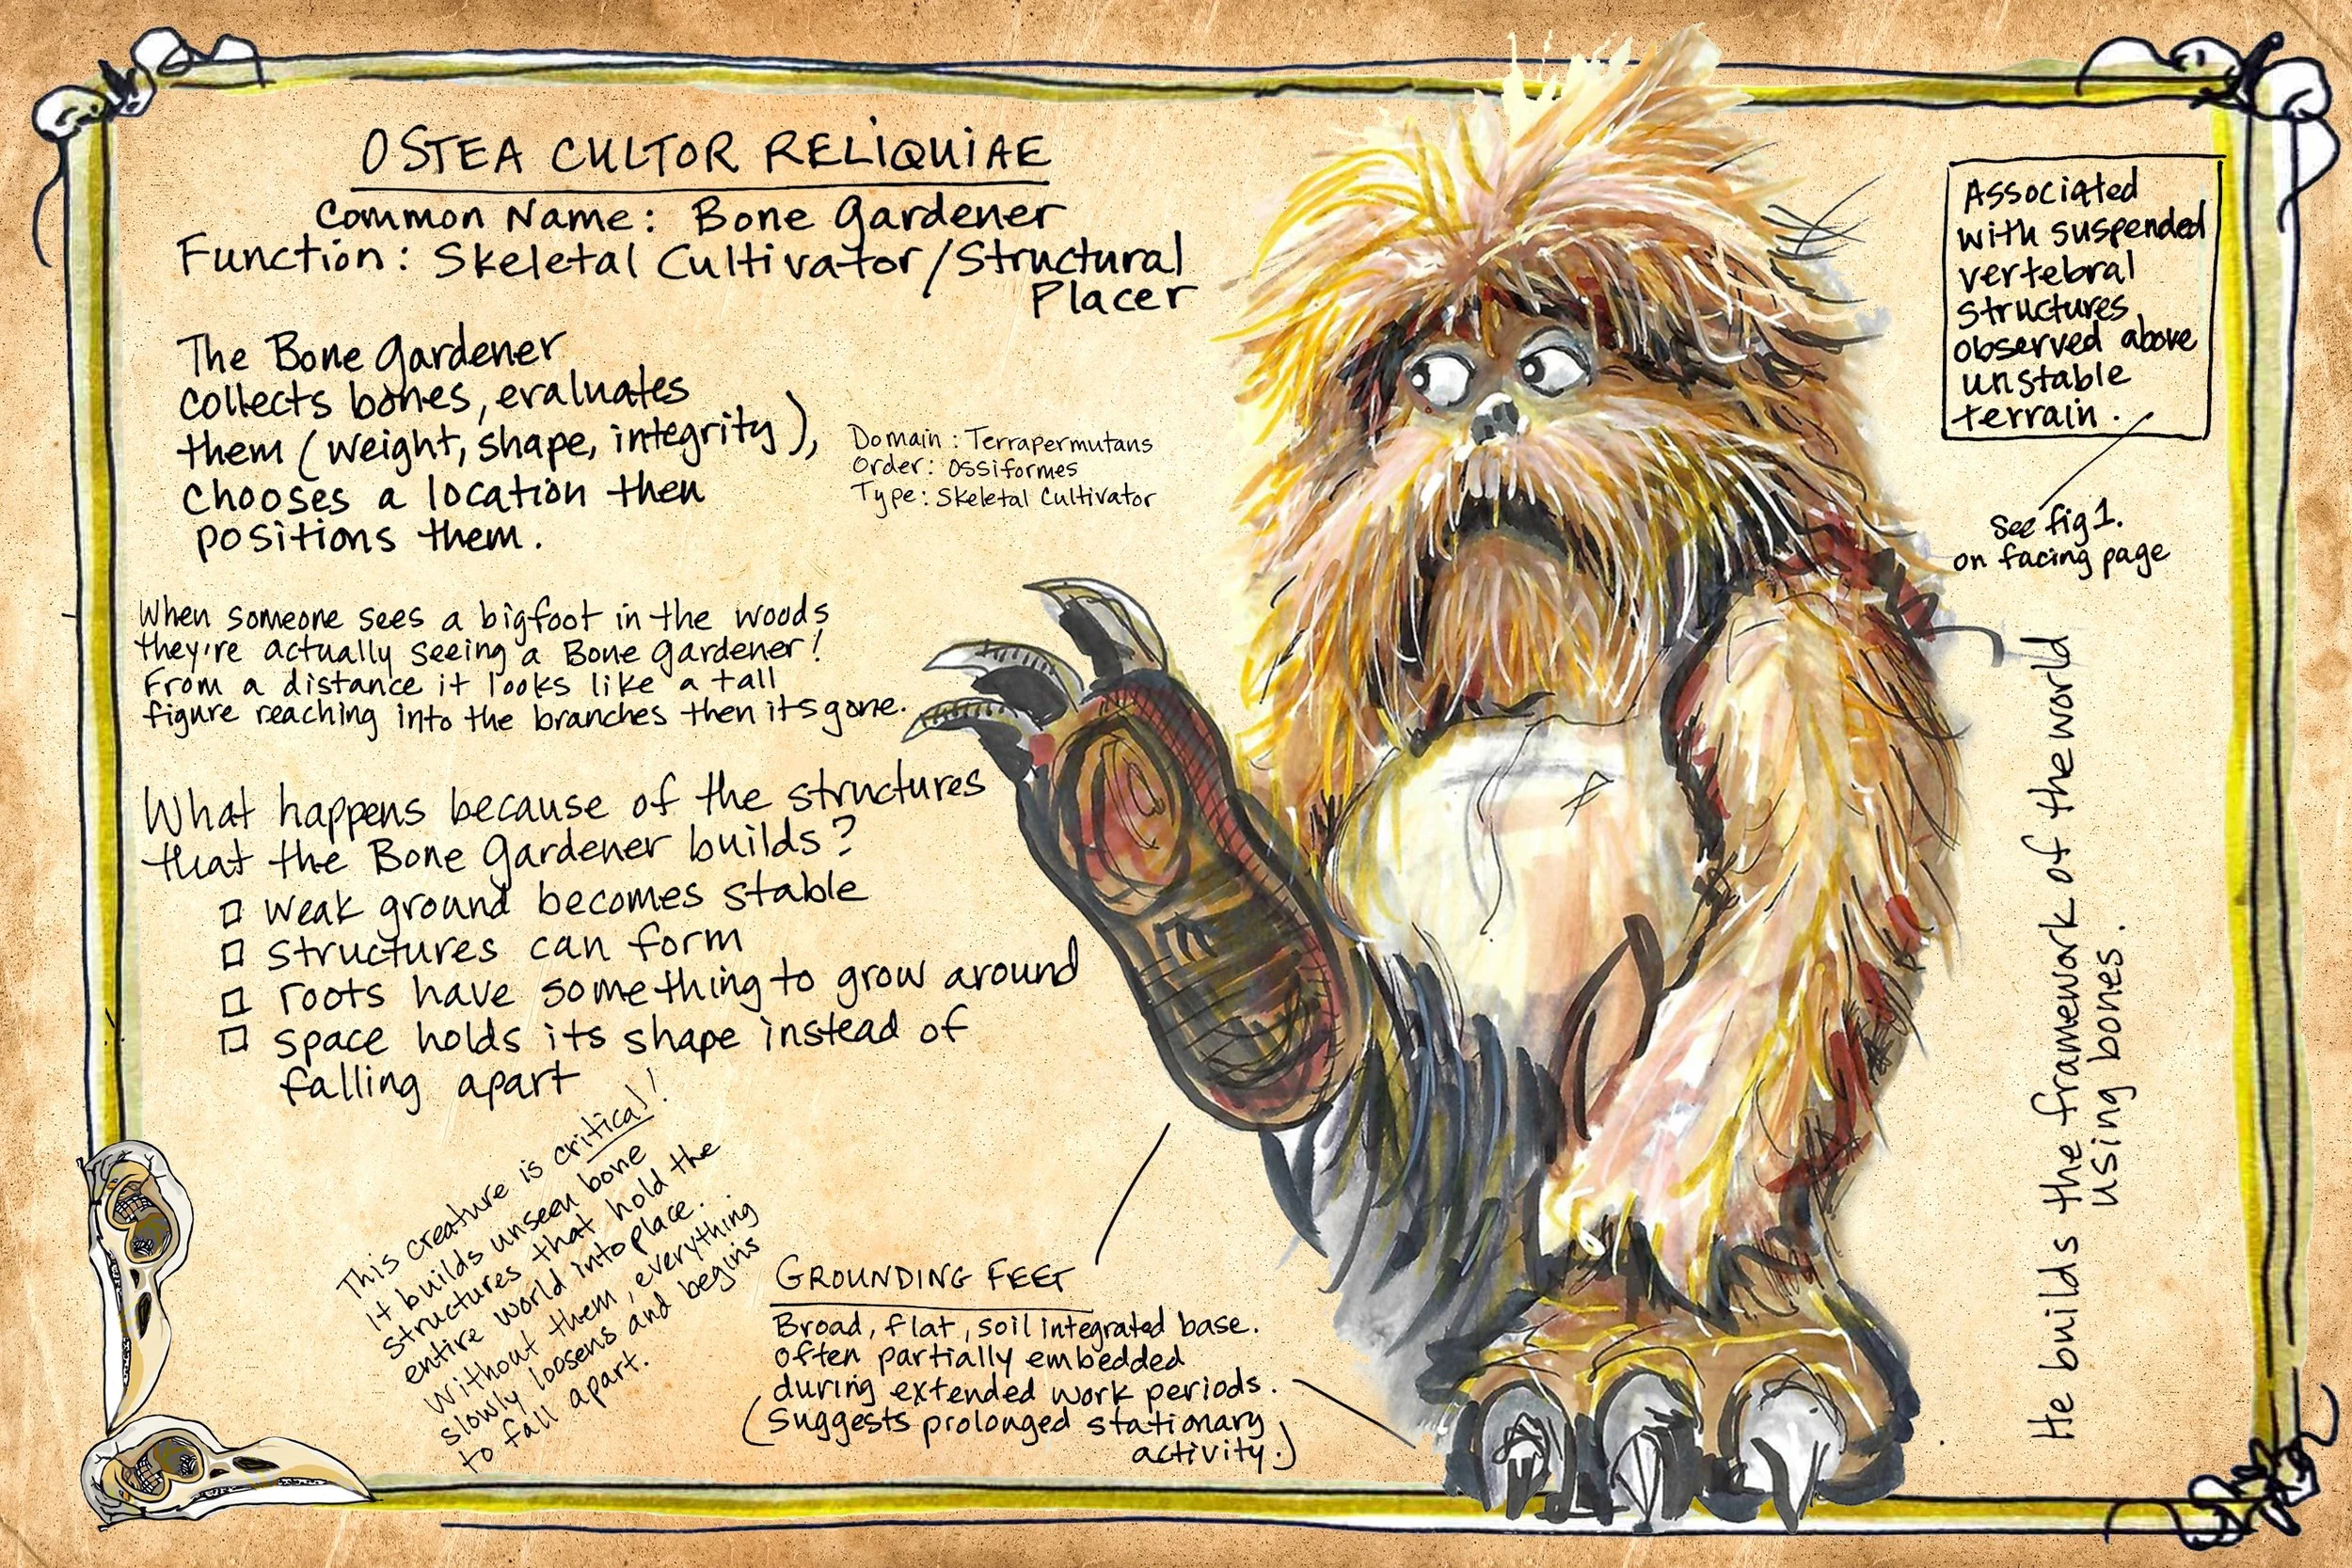 OSTEA CULTOR RELIQUIAE
Common Name: Bone Gardener
Function: Skeletal Cultivator/Structural
Placer
The Bone Gardener
collects bones, evaluates
them (weight, shape, integrity),
chooses a location then
positions them.
Domain: Terrapermutans
Order: Ossiformes
Type: Skeletal Cultivator
When someone sees a bigfoot in the woods
they're actually seeing a Bone Gardener!
From a distance it looks like a tall
figure reaching into the branches then its gone.
What happens because of the structures
that the Bone Gardener builds?
weak ground becomes stable
structures can form
roots have something to grow around
space holds its shape instead of
falling apart
This creature is critical!
it builds unseen bone
structures that hold the
entire world into place.
Without them, everything
slowly loosens and begins
to fall apart.
GROUNDING FEET
Broad, flat, soil integrated base.
often partially embedded
during extended work periods.
(Suggests prolonged stationary
activity.)
Associated
with suspended
vertebral
structures
observed above
unstable
terrain.
See fig 1.
on facing page
He builds the framework of the world
using bones.